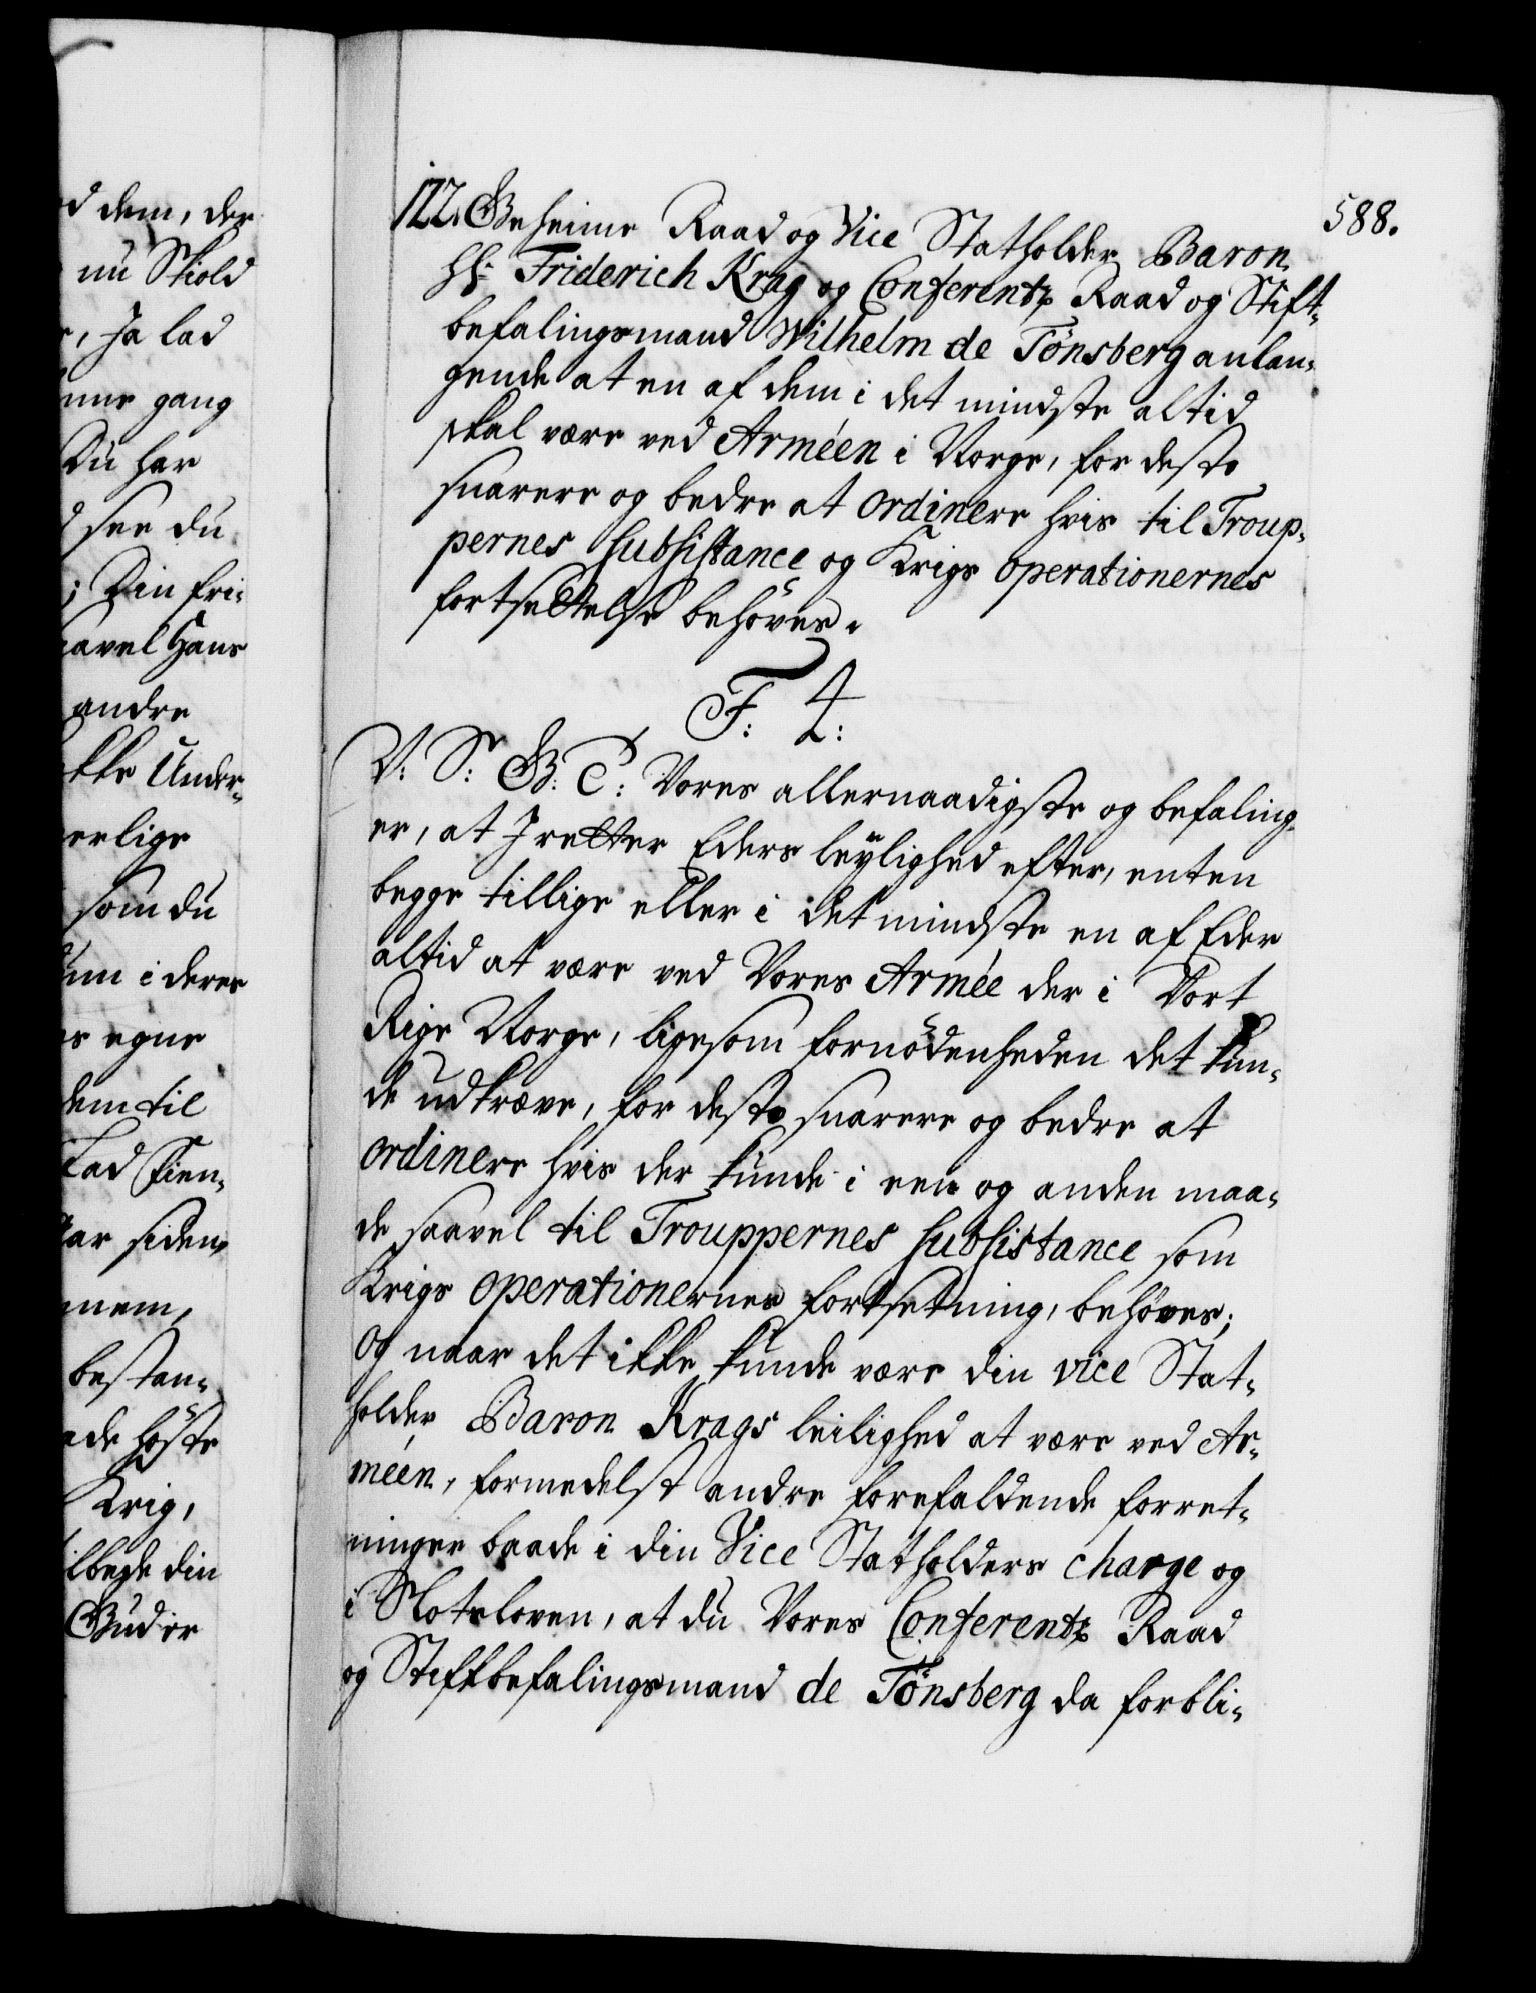 d dem, der
nu Skiold
r, Ja lad
nne gang
Du har
see du
; Din fri-
saavel Hans
andre
ikke Under-
erlige
som du
dnu i deres
es egne
dem til
Lad Fien-
ar siden
nem,
bestan-
ade höste
Krig,
ilbede din
Gud er
588.
122. Geheime Raad og Vice Statholder Baron
Hr: Friderich Krag og Conferentz Raad og Stift-
befalingsmand Wilhelm de Tönsberg anlan-
gende at en af dem i det mindste altid
skal være ved Arméen i Norge, for desto
snarere og bedre at ordinere hvis til Troup-
pernes subsistance og Krigs operationernes
fortsettelse behöves.
F: 4:
V: S: G: T: Vores allernaadigste og befaling
er, at I retter Eders leylighed efter, enten
begge tillige eller i det mindste en af Eder
altid at være ved Vores Armée der i Vort
Rige Norge, ligesom fornödenheden det kun-
de udkræve, for desto snarere og bedre at
ordinere hvis der kunde i een og anden maa-
de saavel til Trouppernes subsistance som
Krigs operationernes fortsetning, behöves;
Og naar det ikke kunde være din vice Stat-
holder Baron Krags leilighed at være ved Ar-
méen, formedelst andre forefaldende forret-
ninger baade i din Vice Statholders charge og
i Slotsloven, at du Vores Conferentz Raad
og Stiftbefalingsmand de Tönsberg da forbli-